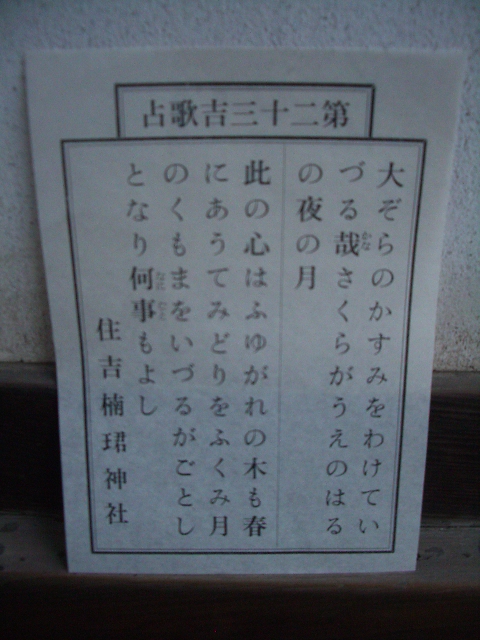 第二十三吉歌占
大ぞらのかすみをわけてい
づる哉さくらがうえのはる
の夜の月
此の心はふゆがれの木も春
にあうてみどりをふくみ月
のくもまをいづるがごとし
となり何事もよし
住吉楠珺神社